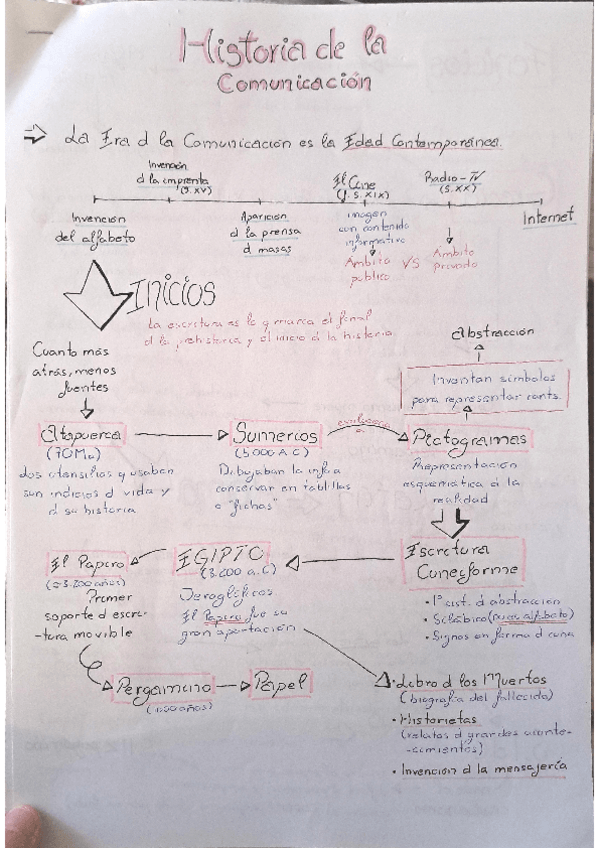 Historia de la
Comunicación
La Era d la Comunicación es la Edad Contemporánea.
Invención
d la imprenta
(S. XV)
El Cine
(f. S. XIX)
Radio-TV
(S. XX)
Invención
del alfabeto
Aparición
d la prensa
d masas
imagen
con contenido
informativo
Internet
Ámbito
público
VS
Ámbito
privado
Inicios
La escritura es lo q marca el final
d la prehistoria y el inicio d la historia
Cuanto más
atrás, menos
fuentes
Abstracción
Inventan símbolos
para representar
Atapuerca
Sumerios
(5.000 A.C)
evolucionó a
Pictogramas
dos utensilios q usaban
son indicios d vida y
d su historia
Dibujaban la info a
conservar en tablillas
o "fichas"
Representación
esquemática d la
realidad
El Papiro
Primer
soporte d escri-
-tura movible
EGIPTO
(3.200 a.C)
Jeroglíficos.
El Papiro fue su
gran aportación
Escritura
Cuneiforme
• 1º sist. d abstracción
• Silábico
• Signos en forma d cuña
Pergamino
Papel
• Libro d los Muertos
(biografía del fallecido)
• Historietas
(relatos d grandes aconte-
-cimientos)
• Invención d la mensajería